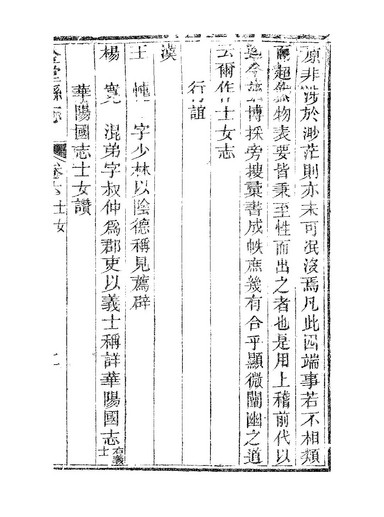 原非涉於渺茫則亦未可泯沒焉凡此四端事若不相類
而超然物表要皆秉至性而出之者也是用上稽前代以
今博採旁搜彙書成帙庶幾有合乎顯微闡幽之道
云爾作士女志
行誼
漢
王忳 字少林以陰德稱見薦辟
楊寬 混弟字叔仲為郡吏以義士稱詳華陽國志右義士
華陽國志士女讚
金堂縣志 卷六 士女